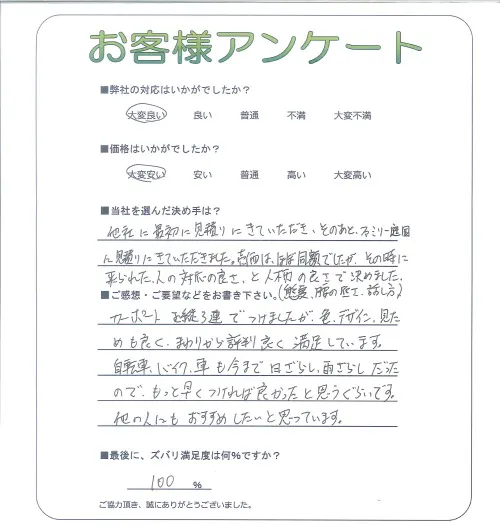 お客様アンケート
■弊社の対応はいかがでしたか？
大変良い 良い 普通 不満 大変不満
■価格はいかがでしたか？
大変安い 安い 普通 高い 大変高い
■当社を選んだ決め手は？
他社に最初に見積りにきていただき、そのあと、ファミリー庭園
に見積りにきていただきました。価格は、ほぼ同額でしたが、その時に
来られた人の対応の良さ、と人柄の良さで決めました。
■ご感想・ご要望などをお書き下さい。(態度、腰の低さ、話し方)
カーポートを縦3連でつけましたが、色、デザイン、見ため
も良く、まわりから評判良く満足しています。
自転車、バイク、車も今まで日ざらし、雨ざらしだった
ので、もっと早くつければ良かったと思うぐらいです。
他の人にもおすすめしたいと思っています。
■最後に、ズバリ満足度は何％ですか？
100 ％
ご協力頂き、誠にありがとうございました。